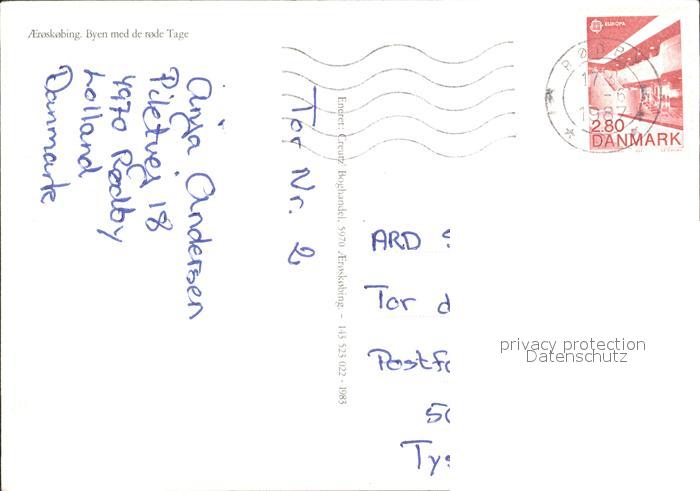 Ærøskøbing. Byen med de røde Tage
Anja Andersen
Piletvej 18
4970 Rødby
Lolland
Danmark
Tor Nr. 2
Eneret: Creutz Boghandel, 5970 Ærøskøbing. - 143 523 022 - 1983
EUROPA
2.80
DANMARK
RØDBY
17
6
1987
ARD S
Tor d
Postfo
50
Tys
privacy protection
Datenschutz